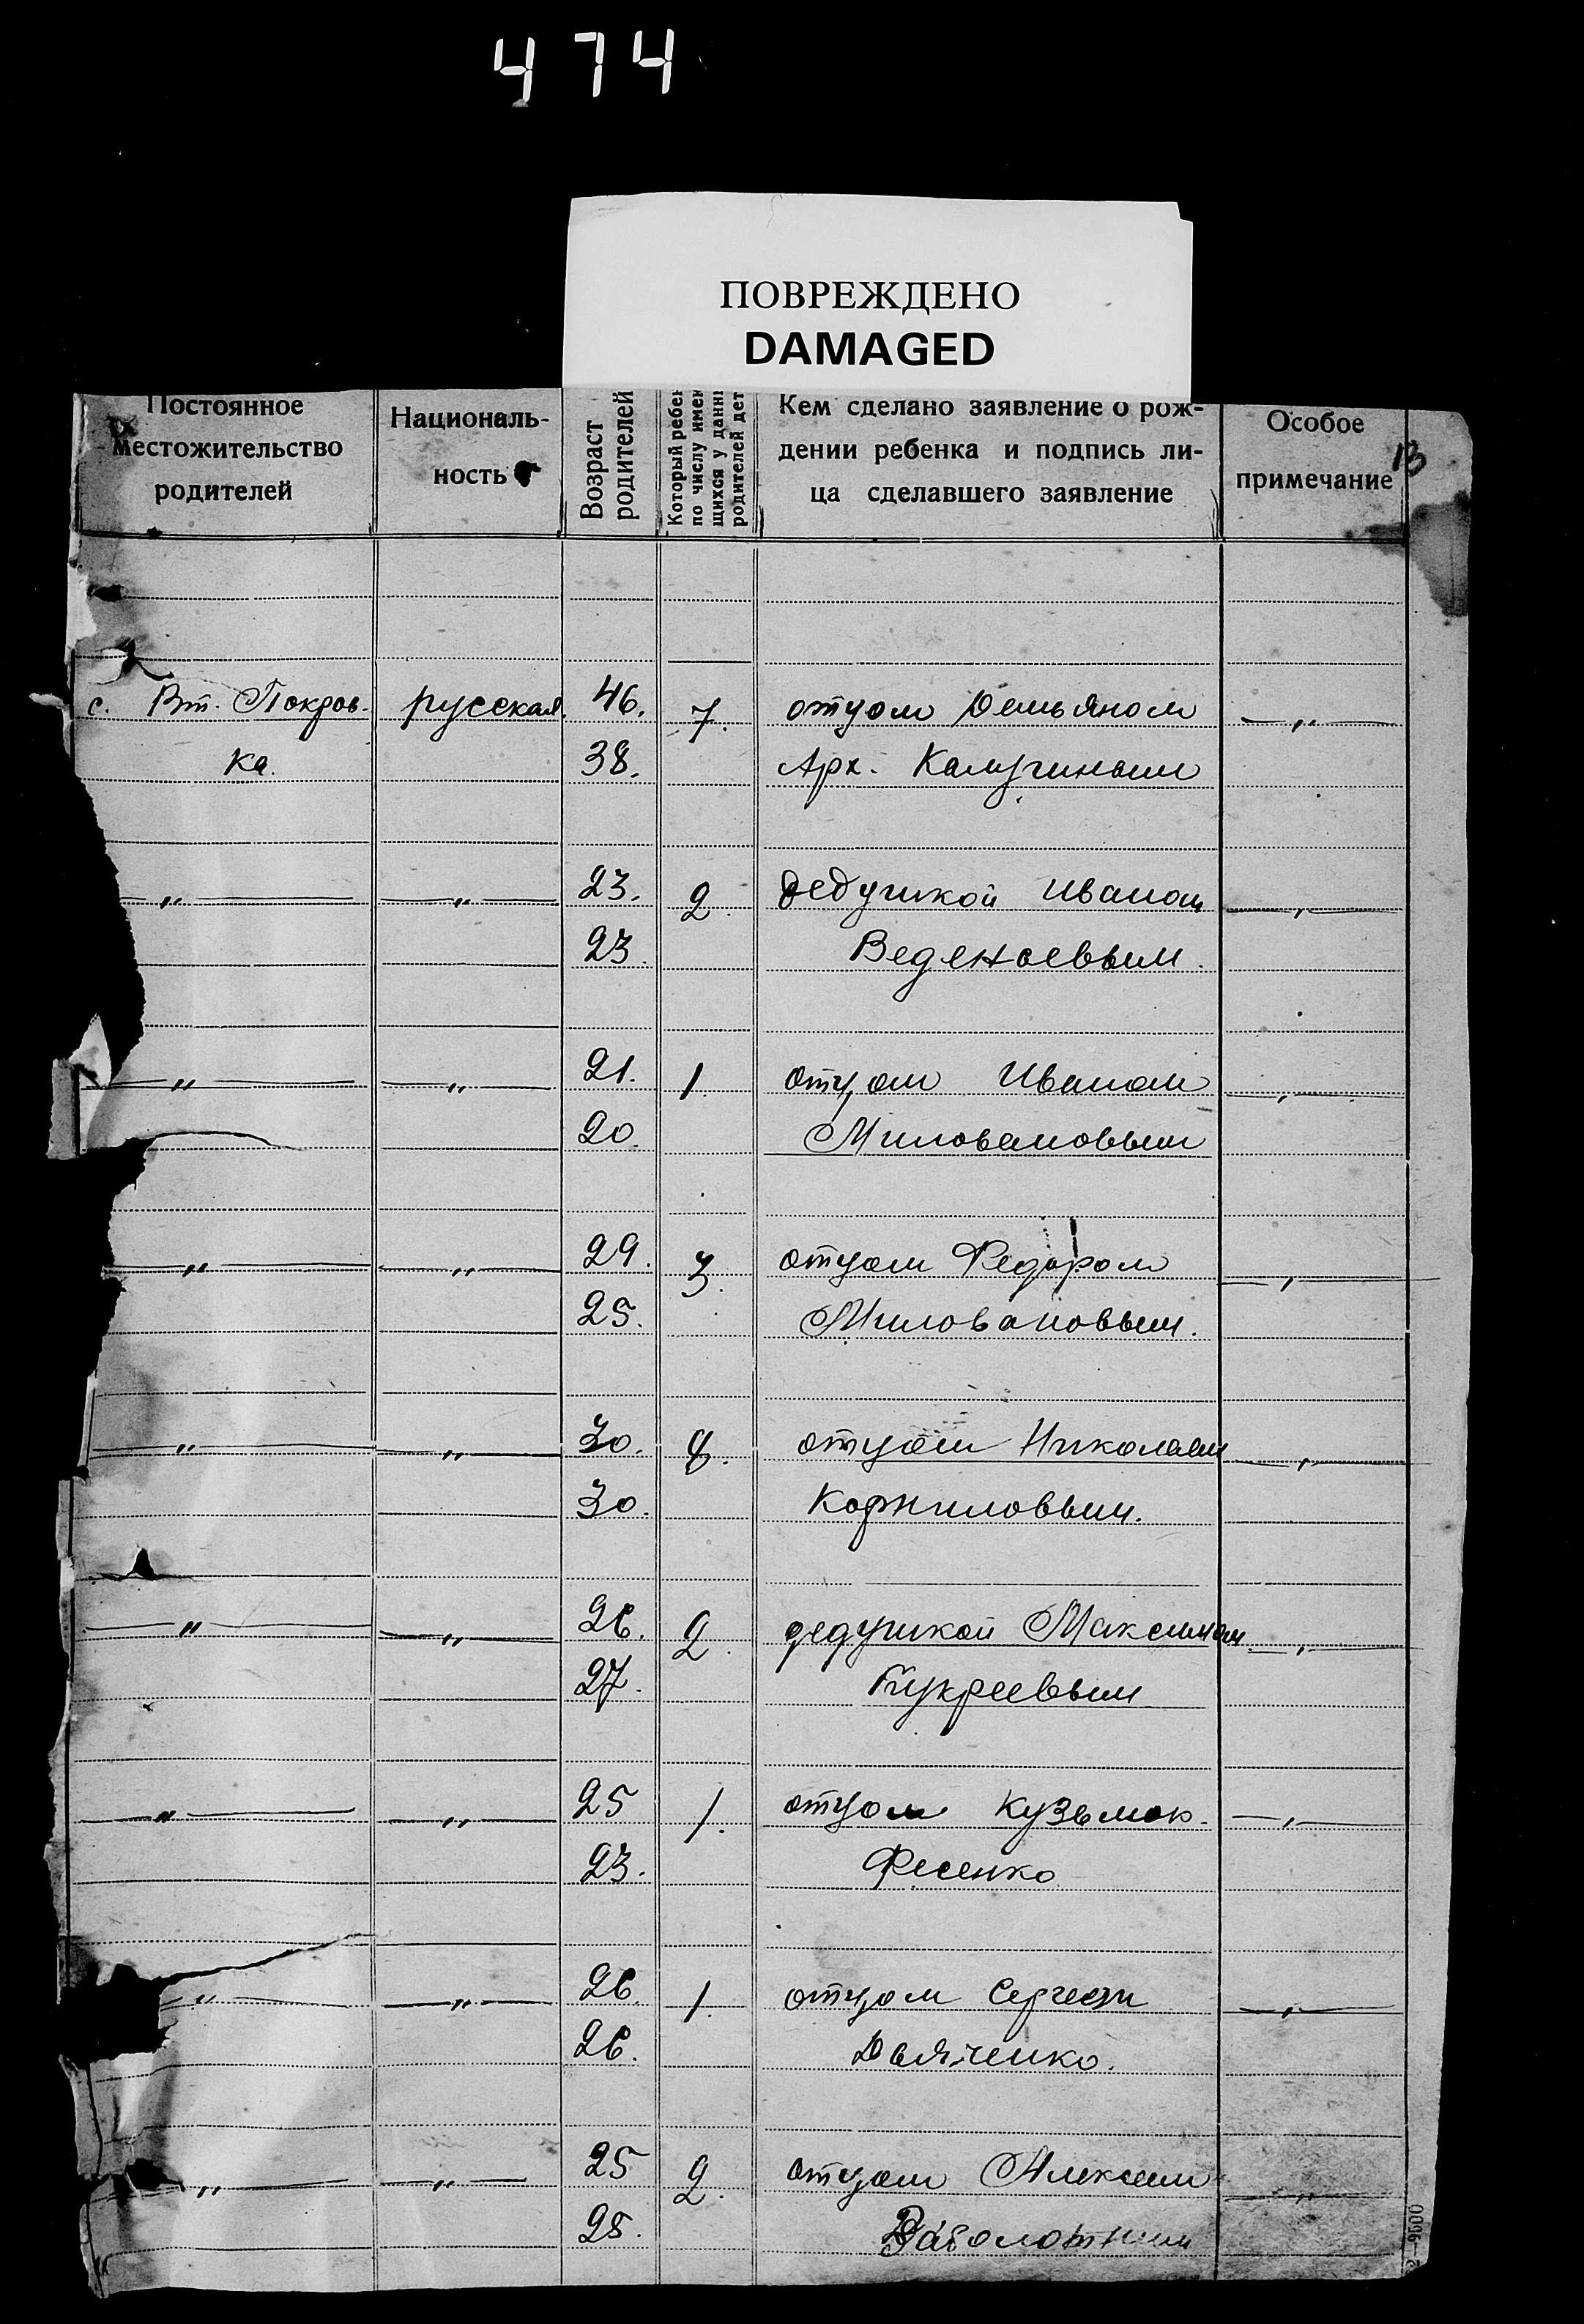 474
ПОВРЕЖДЕНО
DAMAGED
Постоянное
местожительство
родителей
Националь-
ность
Возраст
родителей
Который ребен
по числу имею
щихся у данны
родителей дет
Кем сделано заявление о рож-
дении ребенка и подпись ли-
ца сделавшего заявление
Особое
примечание
13
с. Вт. Покров- русская. 46. 7. отцом Демьяном —„—
ка. 38. Арх. Калугиным
—„— —„— 23. 2. дедушкой Иваном —„—
23. Веденеевым.
—„— —„— 21. 1. отцом Иваном —„—
20. Миловановым
—„— —„— 29. 3. отцом Федором —„—
25. Миловановым.
—„— —„— 30. отцом Николаем —„—
30. Корниловым.
—„— —„— 26. 2. дедушкой Максимом —„—
27. Кукреевым
—„— —„— 25 1. отцом Кузьмою. —„—
23. Фесенко
—„— —„— 26. 1. отцом Сергеем —„—
26. Дьяченко.
—„— —„— 25 2. отцом Алексеем —„—
25. Заболотным
2—9500